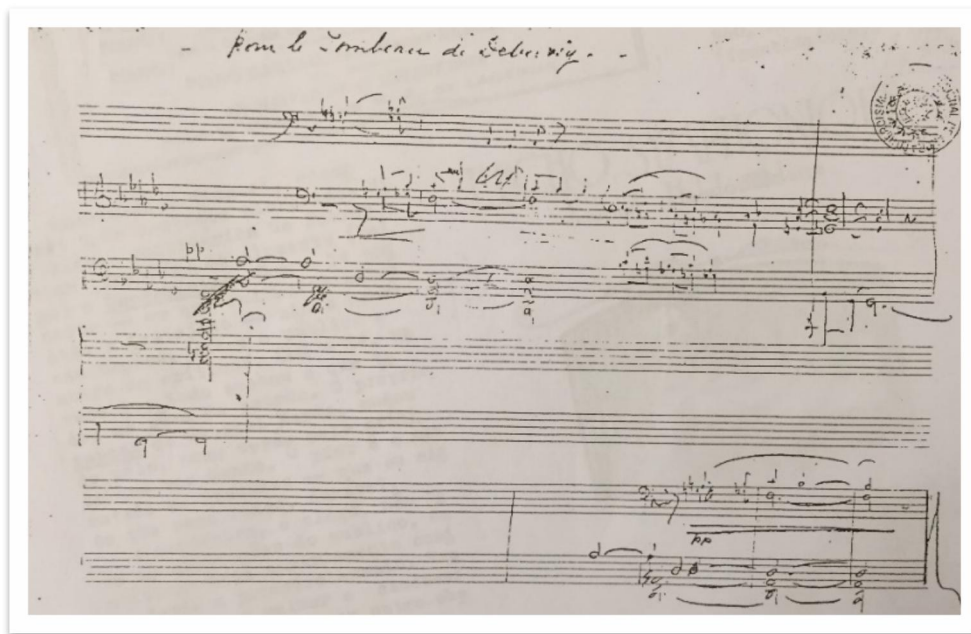 - Pour le Tombeau de Debussy. -
pp
pp